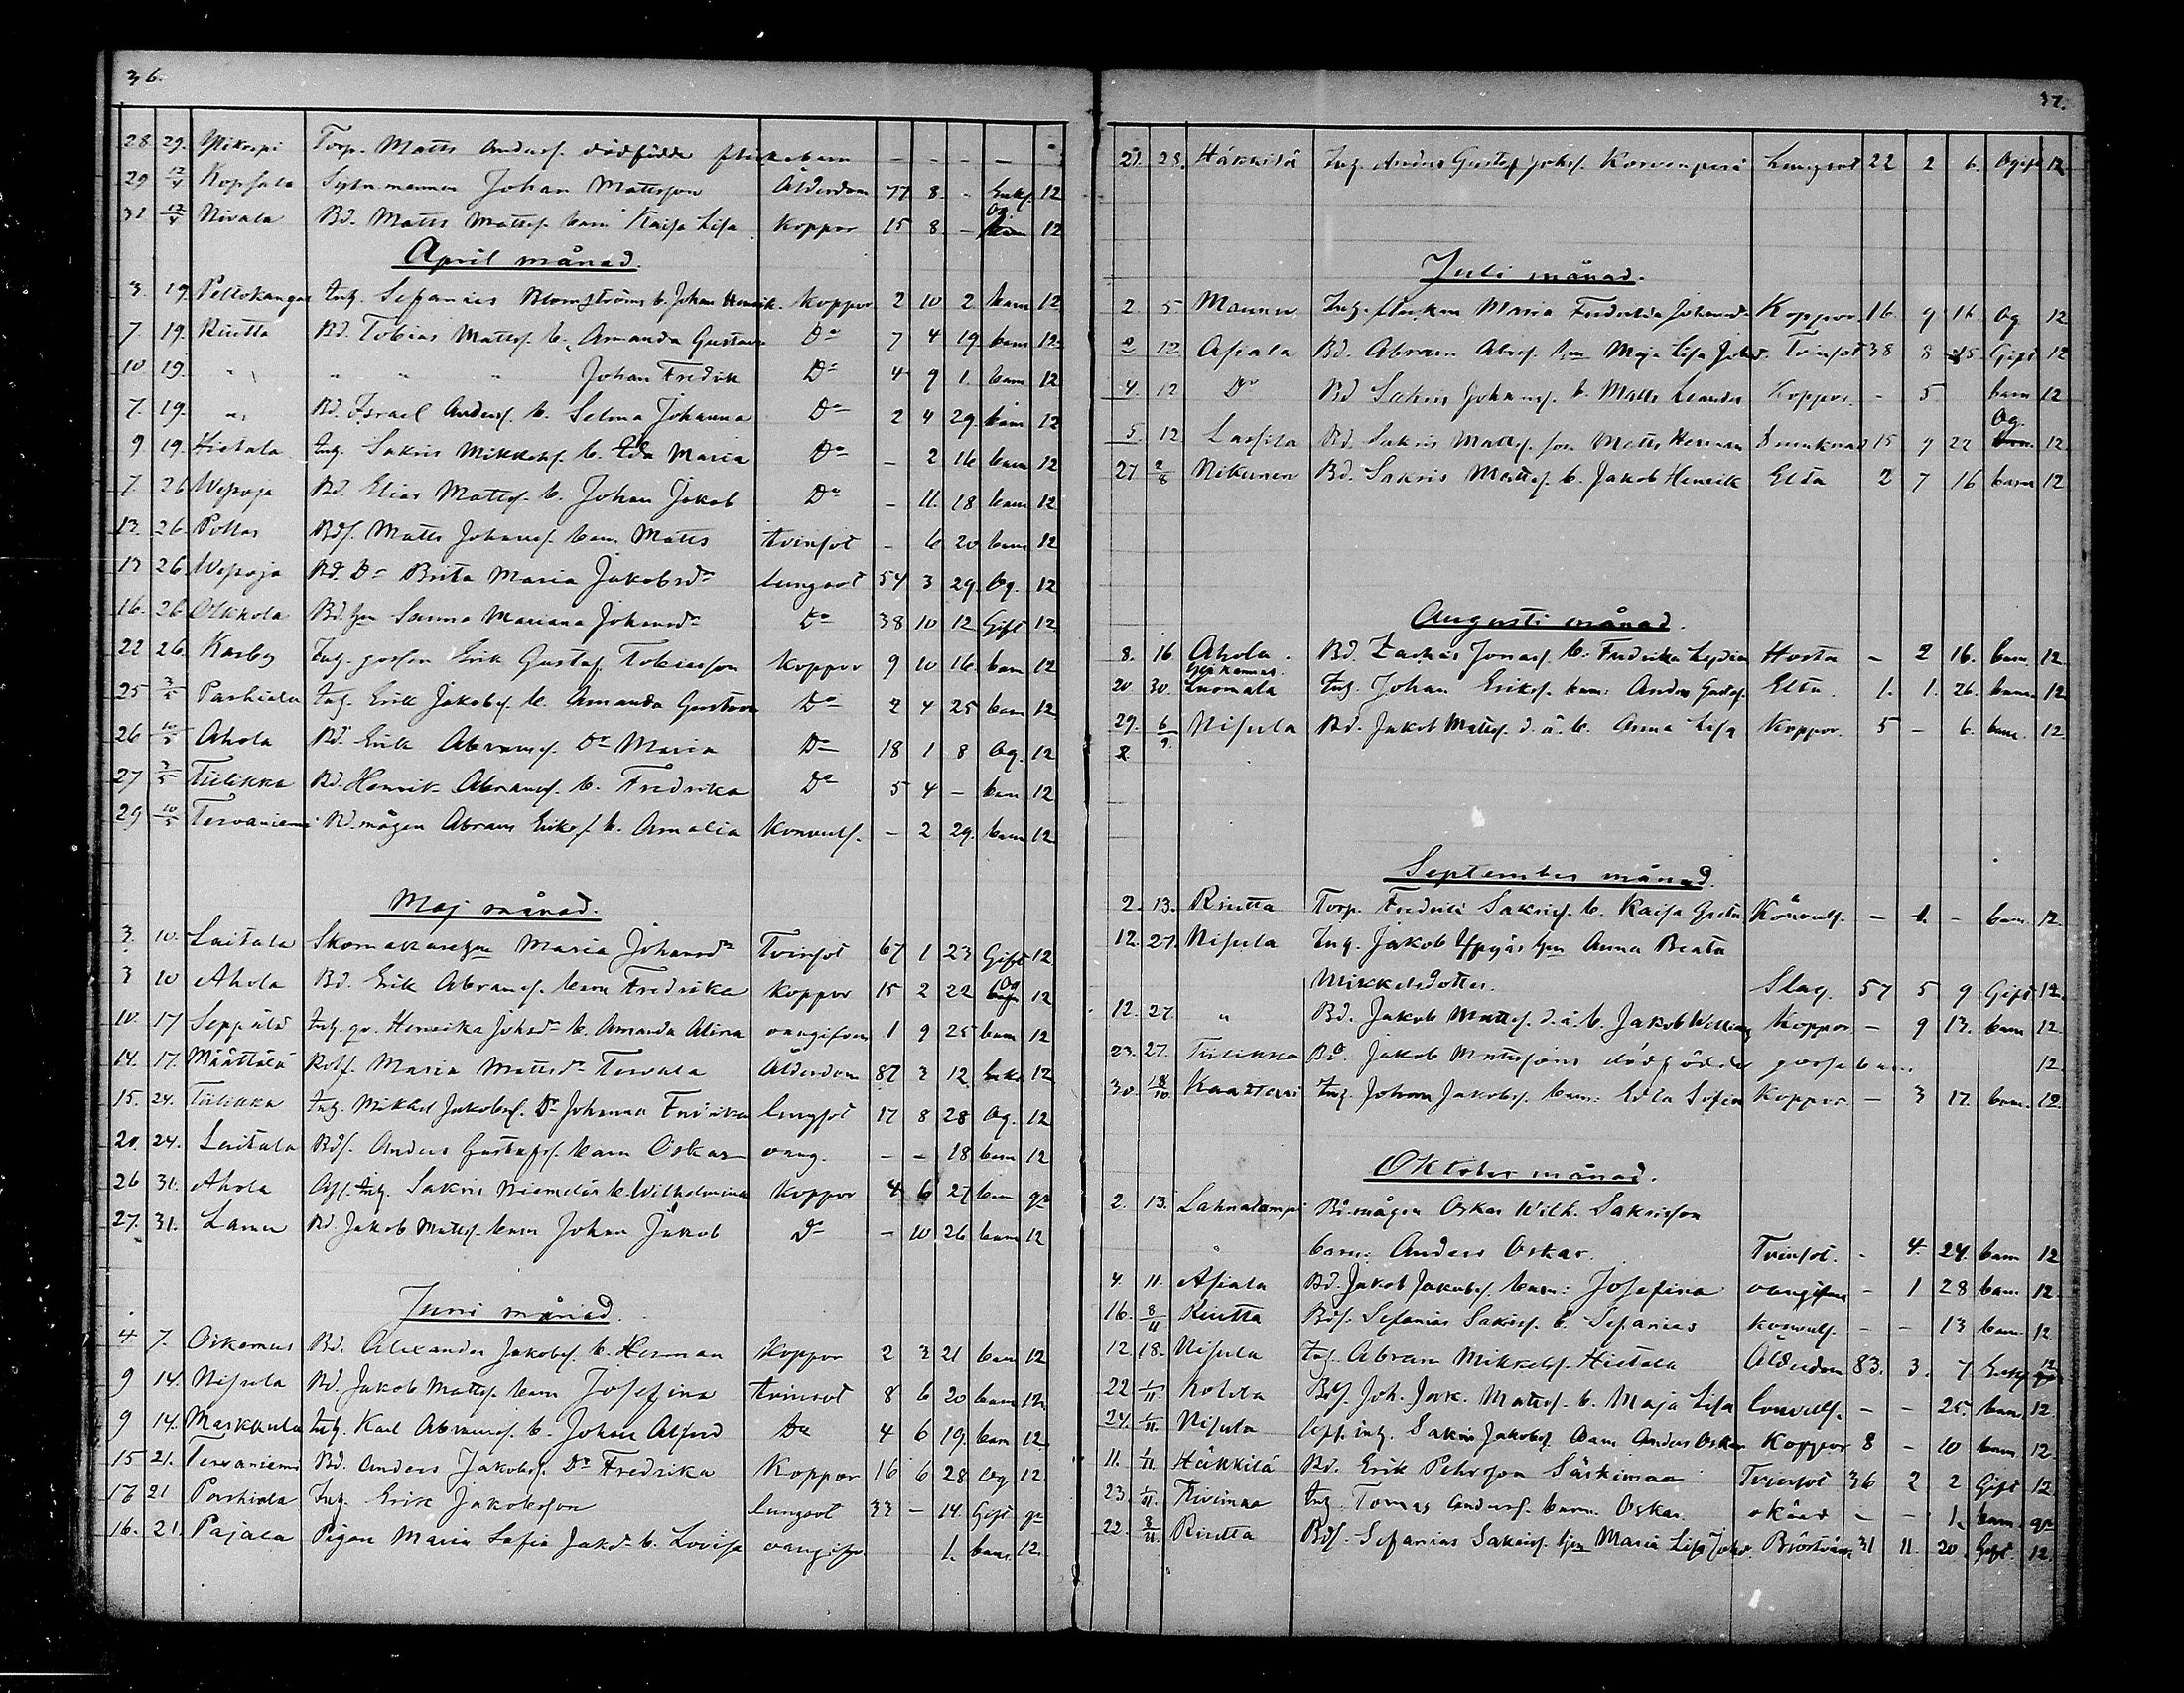 36.
28. 29. Torp. Matts Anders. dödfödda flickebarn - - - -
29 12/4 Kopsala Johan Mattsson Ålderdom 77 8 - Enkl. 12
31 12/4 Nivala Bd. Matts Mattss. barn Kaisa Lisa Koppor 15 8 - Og. 12
April månad.
3. 19. Peltokangas Inh. Sefanias Blomströms b. Johan Henrik Koppor 2 10 2 barn 12
7. 19. Riutta Bd. Tobias Mattss. b. Amanda Gustava Do 7 4 19 barn 12
10 19. " " " " Johan Fredrik Do 4 9 1. barn 12
7. 19. " Bd. Israel Anderss. b. Selma Johanna Do 2 4 29. barn 12
9 19. Hietala Inh. Sakris Mikkelss. b. Ida Maria Do - 2 16 barn 12
7. 26 Wepsja Bd. Elias Mattss. b. Johan Jakob Do - 11. 18 barn 12
13. 26. Pottas Bds. Matts Johanss. barn Matts tvinsot - 6 20 barn 12
13 26. Wepsja Bd. Dr Brita Maria Jakobsdr lungsot 54 3 29. Og. 12
16. 26 Olkkola Bd. hu Sanna Mariana Johansdr Do 38 10 12 Gift 12
22 26. Karby Inh. gossen Erik Gustaf Tobiasson Koppor 9 10 16. barn 12
25 3/5 Parhiala Inh. Erik Jakobss. b. Amanda Gustava Do 2 4 25 barn 12
26 10/5 Ahola Bd. Erik Abramss. Dr Maria Do 18 1 8 Og. 12
27 3/5 Tiilikka Bd. Henrik Abramss. b. Fredrika Do 5 4 - barn 12
29 10/5 Tervaniemi Bd. mågen Abram Erikss. b. Amalia Konvuls. - 2 29. barn 12
Maj månad.
3. 10. Laitala Skomakarehu Maria Johansdr Tvinsot 67 1 23 Gift 12
3 10 Ahola Bd. Erik Abramss. barn Fredrika Koppor 15 2 22 Og 12
10. 17 Seppälä Inh. qv. Henrika Johsdr b. Amanda Alina oangifven 1 9 25 barn 12
14. 17. Määttälä Rotf. Maria Mattsdr Tervala Ålderdom 87 3 12. Enka 12
15. 24. Tiilikka Inh. Mikkel Jakobss. Dr Johanna Fredrika lungsot 17 8 28 Og. 12
20. 24. Laitala Bds. Anders Gustafss. barn Oskar oang. - - 18 barn 12
26 31. Ahola Afs. Inh. Sakris Niemeläs b. Wilhelmina Koppor 4 6 27 barn gr
27. 31. Lamu Bd. Jakob Mattss. barn Johan Jakob Do - 10 26 barn 12
Juni månad.
4 7. Oikemus Bd. Alexander Jakobss. b. Herman Koppor 2 3 21 barn 12
9 14. Nisula Bd. Jakob Mattss. barn Josefina tvinsot 8 6 20 barn 12.
9 14. Markkula Inh. Karl Abramss. b. Johan Alfred Do 4 6 19. barn 12
15 21. Tervaniemi Bd. Anders Jakobss. Dr Fredrika Koppor 16 6 28 Og 12
18 21 Parhiala Inh. Erik Jakobsson lungsot 33 - 14. Gift gr
16. 21. Pajala Pigan Maria Sofia Jakdr b. Lovisa oangifv. 1. barn 12.
37.
21. 28. Häkkilä Inh. Anders Gustaf Johss. Korvenperä Lungsot 22 2 6. Ogift 12
Juli månad.
2. 5 Maunu Inh. flickan Maria Fredrika Johansdr Koppor 16. 9 16. Og 12
12 Asiala Bd. Abram Abrss. hu Maja Lisa Johsd. Tvinsot 38 8 15 Gift 12
4. 12 Do Bd Sakris Johanss. b. Matts Leander Koppor. - 5 barn 12
5. 12 Lassila Bd. Sakris Mattss. son Matts Herman Drunknad 15 9 22 Og. 12.
27 2/8 Nikunen Bd. Sakris Mattss. b. Jakob Henrik Elta 2 7 16 barn 12
Augusti månad.
8. 16 Ahola. Bd. Zachris Jonass. b. Fredrika Lydia Hosta - 2 16. barn. 12.
20 30. Luomala Inh. Johan Erikss. barn: Anders Gustaf Elta. 1. 1. 26. barn. 12
29. 6/9. Nisula Bd. Jakob Mattss. d. ä. b. Anna Lisa Koppor. 5 - 6. barn. 12.
September månad.
2. 13. Riutta Torp. Fredrik Sakriss. b. Kaisa Greta Konvuls. - 1. - barn. 12.
12. 27. Nisula Inh. Jakob hu Anna Beata
Mikkelsdotter. Slag. 57 5 9 Gift 12.
12. 27. " Bd. Jakob Mattss. d. ä. b. Jakob William Koppor - 9 13. barn 12.
23. 27. Tiilikka Bd. Jakob Mattssons dödfödda gossebarn. 12.
30. 18/10 Kaattari Inh. Johan Jakobss. barn: Edla Sofia Koppor - 3 17. barn. 12.
Oktober månad.
2. 13. Lahnalampi Bd. mågen Oskar Wilh. Sakrisson
" barn: Anders Oskar. Tvinsot. - 4. 24. barn 12
4. 11. Asiala Bd. Jakob Jakobss. barn: Josefina oangifven - 1 28 barn. 12.
16. 8/11 Riutta Bds. Sefanias Sakriss. b. Sefanias konvuls. - - 13 barn. 12
12. 18. Nisula Inh. Abram Mikkelss. Hietala Ålderdom 83. 3. 7 Enkl. 12
22 1/11. Kolola Bds. Joh. Jak. Mattss. b. Maja Lisa Convuls. - - 25. barn. 12.
24. 1/11. Nisula Sakris Jakobss. barn Anders Oskar Koppor 8 - 10 barn. 12.
11. 1/11. Häkkilä Bd. Erik Pehrsson Särkimaa Tvinsot 36 2 2 Gift 12
23. 1/11. Inh. Tomas Anderss. barn. Oskar okänd - - 1. barn. gr
22. 8/11 Riutta Bds. Sefanias Sakriss. hu Maria Lisa Johsd. 31 11. 20. Gift. 12.